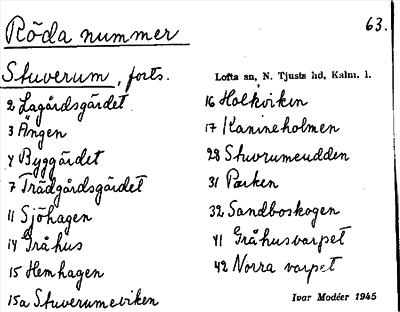 Röda nummer
63.
Stuverum, forts.
Lofta sn, N. Tjusts hd, Kalm. l.
2 Lagårdsgärdet
3 Ängen
4 Byggärdet
7 Trädgårdsgärdet
11 Sjöhagen
14 Gråhus
15 Hemhagen
15a Stuverumeviken
16 Holkviken
17 Kanineholmen
28 Stuvrumeudden
31 Parken
32 Sandboskogen
41 Gråhusvarpet
42 Norra varpet
Ivar Modéer 1945